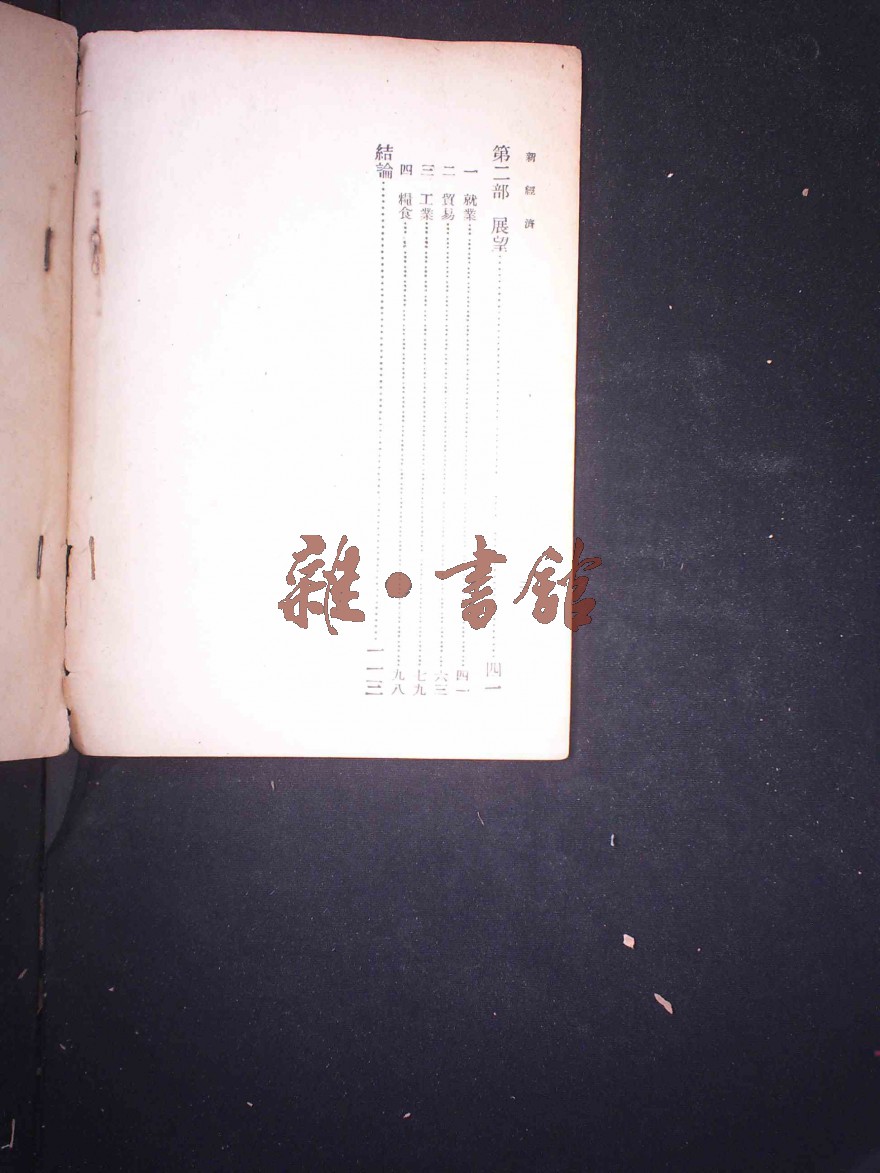 新經濟
第二部 展望……四一
一 就業……四一
二 貿易……六三
三 工業……七九
四 糧食……九八
結論……一一三
雜·書館